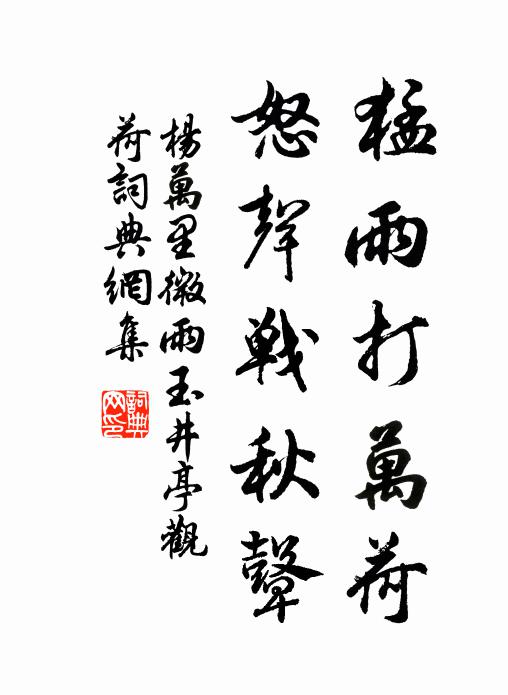 猛雨打萬荷
怒聲戰秋鼙
楊萬里微雨玉井亭觀
荷詞典網集
詞典
网印